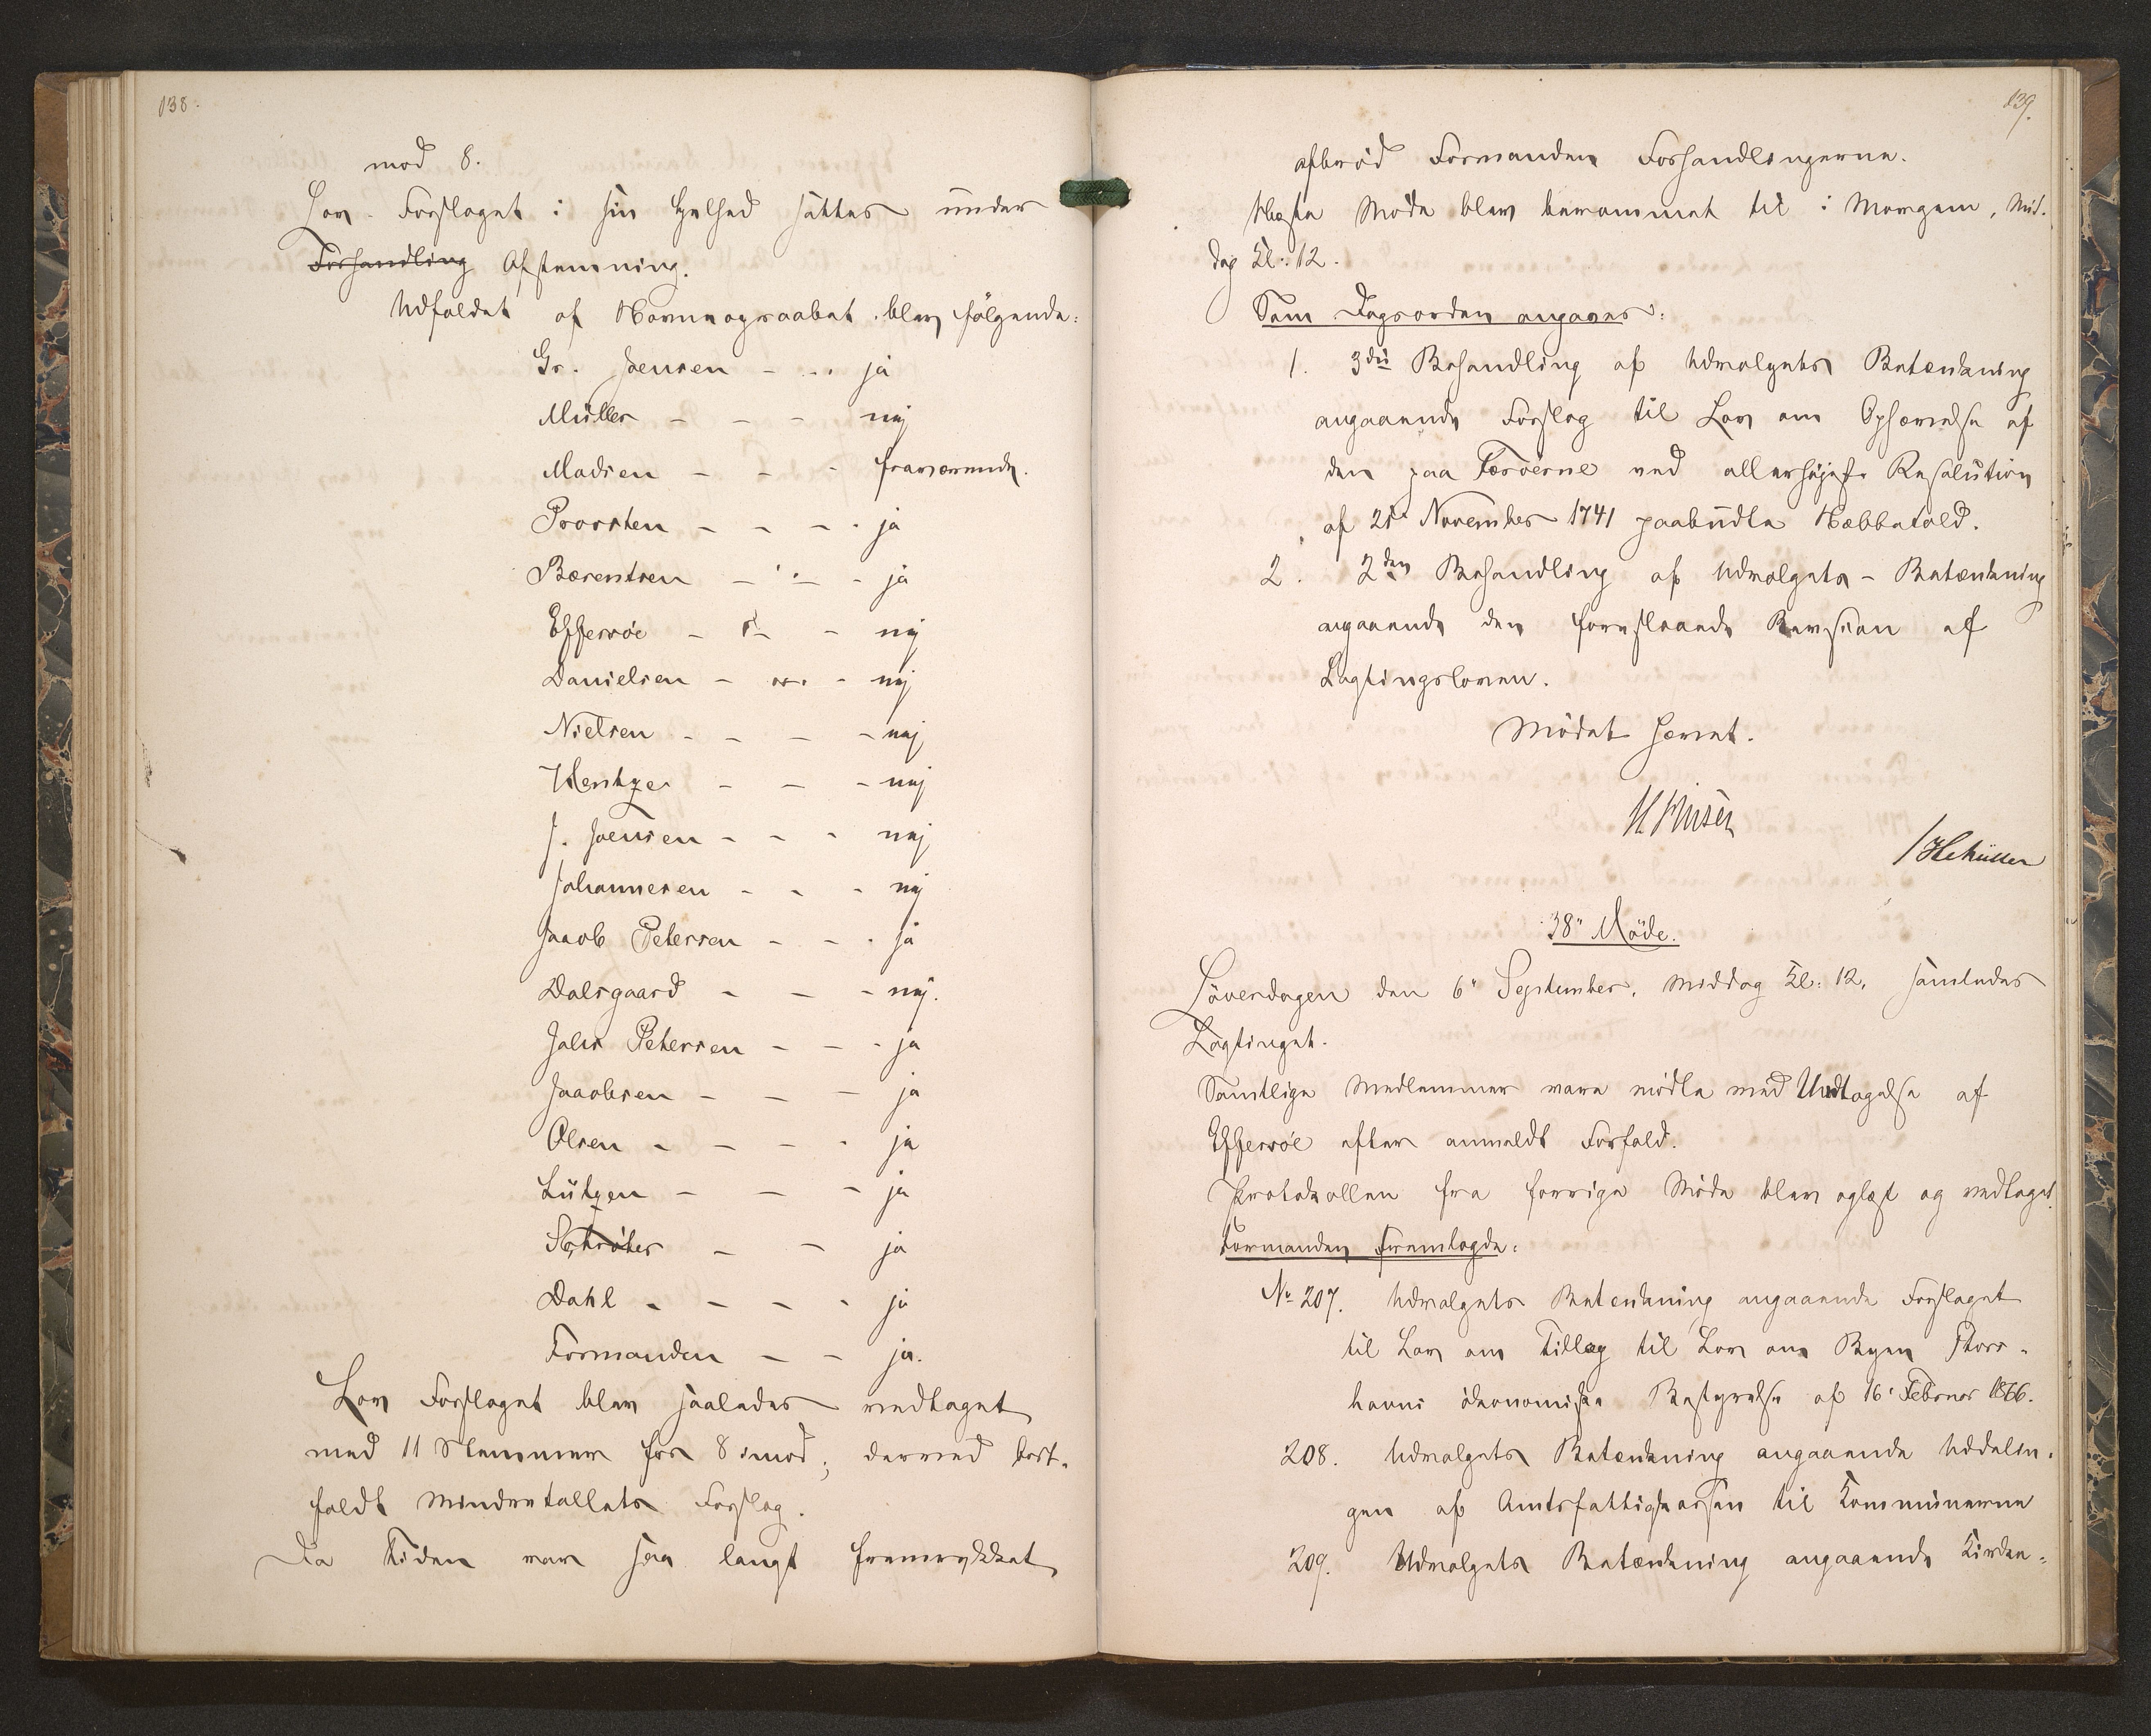 138.
mod 8.
Lov-Forslaget i sin Helhed sattes under
Forhandling Afstemning.
Udfaldet af Navneopraabet blev følgende:
Gr. Joensen - - - ja
Müller - - - nej
Madsen - - - fraværende.
Poorsten - - - ja
Bærentsen - - - ja
Effersöe - - - nej
Danielsen - - - nej
Nielsen - - - - nej
Hentze - - - nej
J. Joensen - - - nej
Johannesen - - - nej
Jacob Petersen - - - ja
Dalsgaard - - - nej.
Johs Petersen - - - ja
Jacobsen - - - ja
Olsen - - - - ja
Lützen - - - ja
Schröter - - ja
Dahl - - - - ja
Formanden - - ja.
Lov Forslaget blev saaledes vedtaget
med 11 Stemmer for 8 imod; derved bort-
faldt Mindretallets Forslag.
Da Tiden var saa langt fremrykket
139.
afbrød Formanden Forhandlingerne.
Næste Møde blev berammet til i Morgen, Mid-
dag Kl: 12.
Som Dagsorden angaves:
1. 3die Behandling af Udvalgets Betænkning
angaaende Forslag til Lov om Ophævelse af
den paa Færöerne ved allerhöjeste Resolution
af 21' November 1741 paabudte Næbbetold.
2. 2den Behandling af Udvalgets Betænkning
angaaende den foreslaaede Revision af
Lagtingsloven.
Mödet hævet.
H Finsen
/HCMüller
38" Möde.
Löverdagen den 6" September, Middag Kl: 12, samledes
Lagtinget.
Samtlige Medlemmer vare mödte med Undtagelse af
Effersöe efter anmeldt Forfald.
Protokollen fra forrige Möde blev oplæst og vedtaget.
Formanden fremlagde:
No 207. Udvalgets Betænkning angaaende Forslaget
til Lov om Tillæg til Lov om Byen Thors-
havns ökonomiske Bestyrelse af 16' Februar 1866.
208. Udvalgets Betænkning angaaende Uddelin-
gen af Amtsfattigkassen til Kommunerne
209. Udvalgets Betænkning angaaende Kirke-